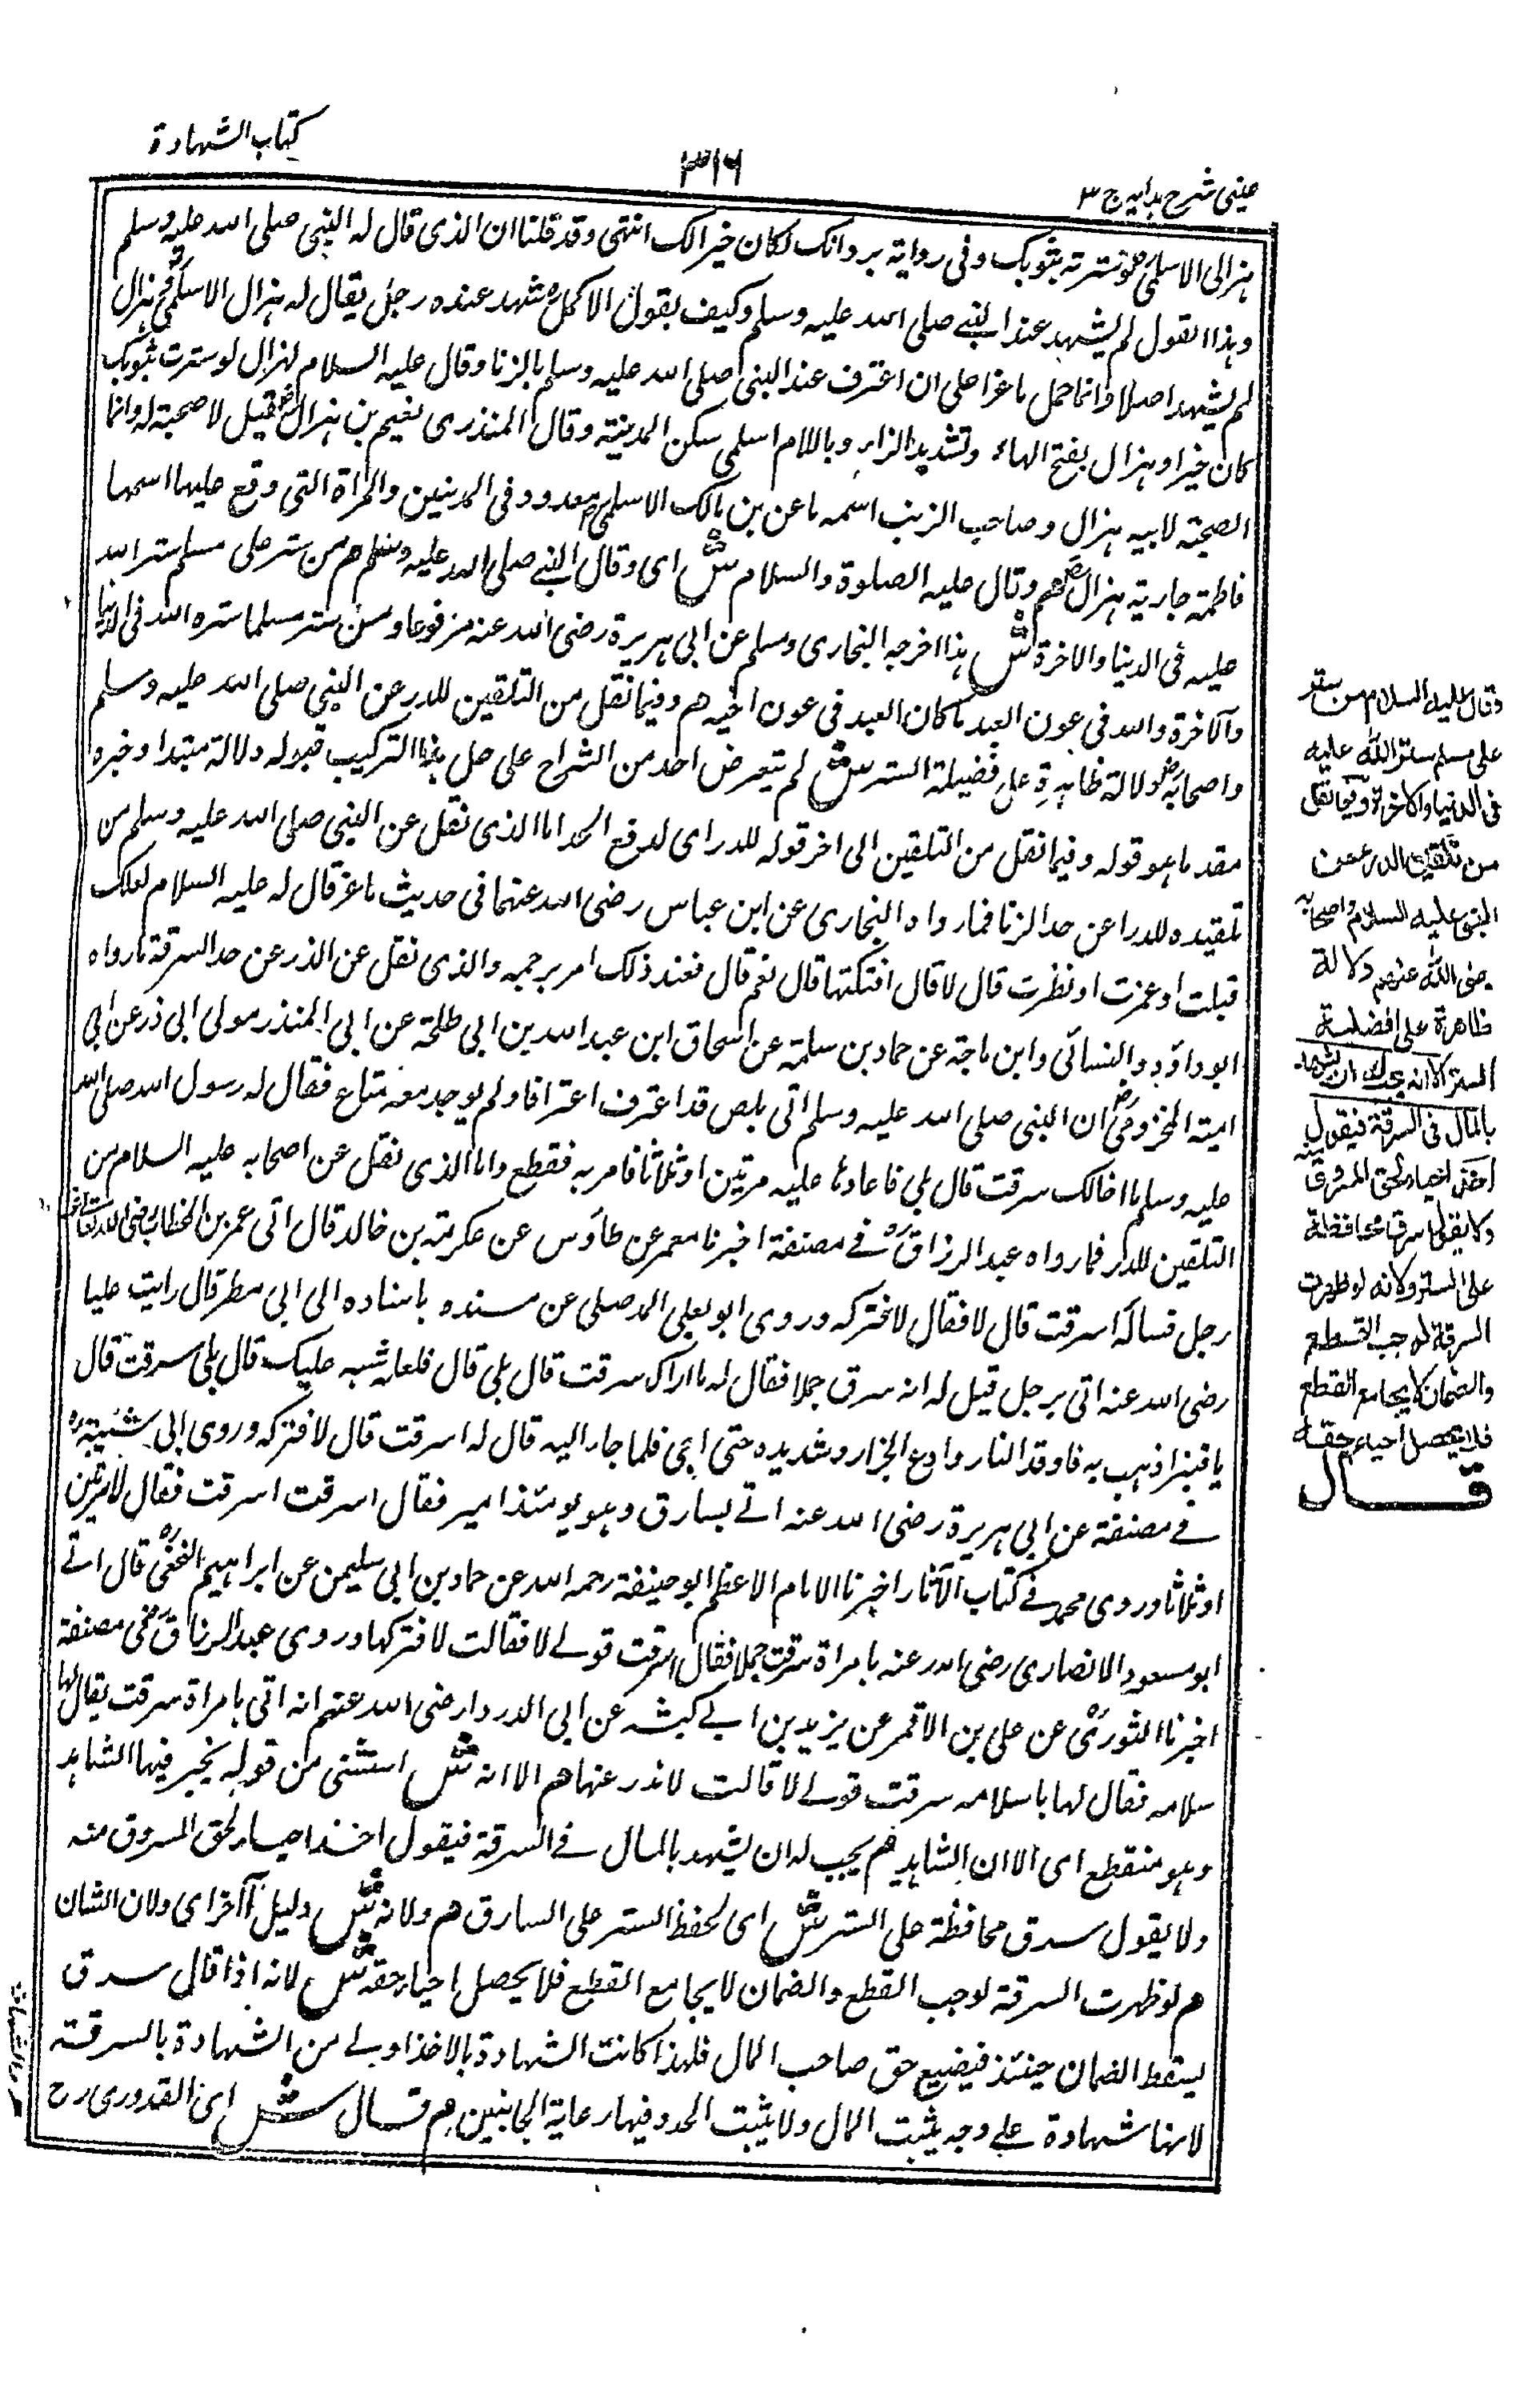 عینی شرح ہدایہ ج ۳
۳۱۶
کتاب الشہادة
ہزالی الاسلمی لو سترتہ بثوبک وفی روایة بردائک لکان خیرا لک انتہی وقد قلنا ان الذی قال لہ النبی صلی اللہ علیہ وسلم
وہذا القول لم یشہد عند النبی صلی اللہ علیہ وسلم وکیف یقول الاکمل شہد عندہ رجل یقال لہ ہزال الاسلمی وہزال
لم یشہد اصلا وانما حمل ماعزا علی ان اعترف عند النبی صلی اللہ علیہ وسلم بالزنا وقال علیہ السلام لہزال لو سترت بثوبک
کان خیرا وہزال بفتح الہاء وتشدید الزاء وباللام اسلمی سکن المدینة وقال المنذری نعیم بن ہزال قیل لا صحبة لہ وانما
الصحبة لابیہ ہزال وصاحب الزنب اسمہ ماعز بن مالک الاسلمی معدود فی المدنیین والمرأة التی وقع علیہا اسمہا
فاطمة جاریة ہزال ھم وقال علیہ الصلوة والسلام ش ای وقال النبی صلی اللہ علیہ وسلم ھم من ستر علی مسلم ستر اللہ
علیہ فی الدنیا والآخرة ش ہذا اخرجہ البخاری ومسلم عن ابی ہریرة رضی اللہ عنہ مرفوعا ومن ستر مسلما سترہ اللہ فی الدنیا
والآخرة واللہ فی عون العبد ما کان العبد فی عون اخیہ ھم وفیما نقل من التلقین للدرء عن النبی صلی اللہ علیہ وسلم
واصحابہ دلالة ظاہرة علی فضیلة الستر ش لم یتعرض احد من الشراح علی حل ہذا الترکیب فقولہ دلالة مبتدا وخبرہ
مقدما ہو قولہ وفیما نقل من التلقین الی اخر قولہ للدرء ای لدفع الحد اما الذی نقل عن النبی صلی اللہ علیہ وسلم من
تلقیدہ للدرا عن حد الزنا فما رواہ البخاری عن ابن عباس رضی اللہ عنہما فی حدیث ماعز قال لہ علیہ السلام لعلک
قبلت او غمزت او نظرت قال لا قال افنکتہا قال نعم قال فعند ذلک امر برجمہ والذی نقل عن الذر عن حد السرقة ما رواہ
ابو داؤد والنسائی وابن ماجة عن حماد بن سلمة عن اسحاق ابن عبد اللہ بن ابی طلحة عن ابی المنذر مولی ابی ذر عن ابی
امیة المخزومی ان النبی صلی اللہ علیہ وسلم اتی بلص قد اعترف اعترافا ولم یوجد معہ متاع فقال لہ رسول اللہ صلی اللہ
علیہ وسلم ما اخالک سرقت قال بلی فاعادہا علیہ مرتین او ثلاثا فامر بہ فقطع واما الذی نقل عن اصحابہ علیہ السلام من
التلقین للدرء فما رواہ عبد الرزاق فے مصنفہ اخبرنا معمر عن طاؤس عن عکرمة بن خالد قال اتی عمر بن الخطاب رضی اللہ
رجل فسالہ اسرقت قال لا فقال لا فترکہ وروی ابو یعلی الموصلی عن مسندہ باسنادہ الی ابی مطر قال رایت علیا
رضی اللہ عنہ اتی برجل قیل لہ انہ سرق جملا فقال لہ ما اراک سرقت قال بلی قال فلعلہ شبہ علیک قال بلی سرقت قال
یا قنبر اذہب بہ فاوقد النار وادع الجزار وشد یدہ حتی اجئ فلما جاء الیہ قال لہ اسرقت قال لا فترکہ وروی ابی شیبة
فے مصنفہ عن ابی ہریرة رضی اللہ عنہ اتے بسارق وہو یومئذ امیر فقال اسرقت اسرقت فقال لا مرتین
او ثلاثا وروی محمد فے کتاب الآثار اخبرنا الامام الاعظم ابو حنیفة رحمہ اللہ عن حماد بن ابی سلیمن عن ابراہیم النخعی قال اتے
ابو مسعود الانصاری رضی اللہ عنہ بامراة سرقت جملا فقال اسرقت قولے لا فقالت لا فترکہا وروی عبد الرزاق فی مصنفہ
اخبرنا الثوری عن علی بن الاقمر عن یزید بن ابے کبشہ عن ابی الدرداء رضی اللہ عنہم انہ اتی بامراة سرقت یقال لہا
سلامہ فقال لہا یا سلامہ سرقت قولے لا قالت لا فدرء عنہا ھم الا انہ ش استثنی من قولہ یخیر فیہا الشاہد
وہو منقطع ای الا ان الشاہد ھم یجب لہ ان یشہد بالمال فے السرقة فیقول اخذ احیاء لحق المسروق منہ
ولا یقول سرق محافظة علی الستر ش ای لحفظ الستر علی السارق ھم ولانہ ش دلیل آخر ای ولان الشان
ھم لو ظہرت السرقة لوجب القطع والضمان لا یجامع القطع فلا یحصل احیاء حقہ ش لانہ اذا قال سرق
یسقط الضمان حینئذ فیضیع حق صاحب المال فلہذا کانت الشہادة بالاخذ اولے من الشہادة بالسرقة
لانہا شہادة علے وجہ یثبت المال ولا یثبت الحد وفیہا رعایة الجانبین ھم قال ش ای القدوری رح
وقال علیہ السلام من ستر
علی مسلم ستر اللہ علیہ
فی الدنیا والآخرة وفیما نقل
من تلقین الدرء عن
النبی علیہ السلام واصحابہ
رضی اللہ عنہم دلالة
ظاہرة علی افضلیة
الستر الا انہ یجب لہ ان یشہد
بالمال فی السرقة فیقول
اخذ احیاء لحق المسروق منہ
ولا یقول سرق محافظة
علی الستر ولانہ لو ظہرت
السرقة لوجب القطع
والضمان لا یجامع القطع
فلا یحصل احیاء حقہ
قال